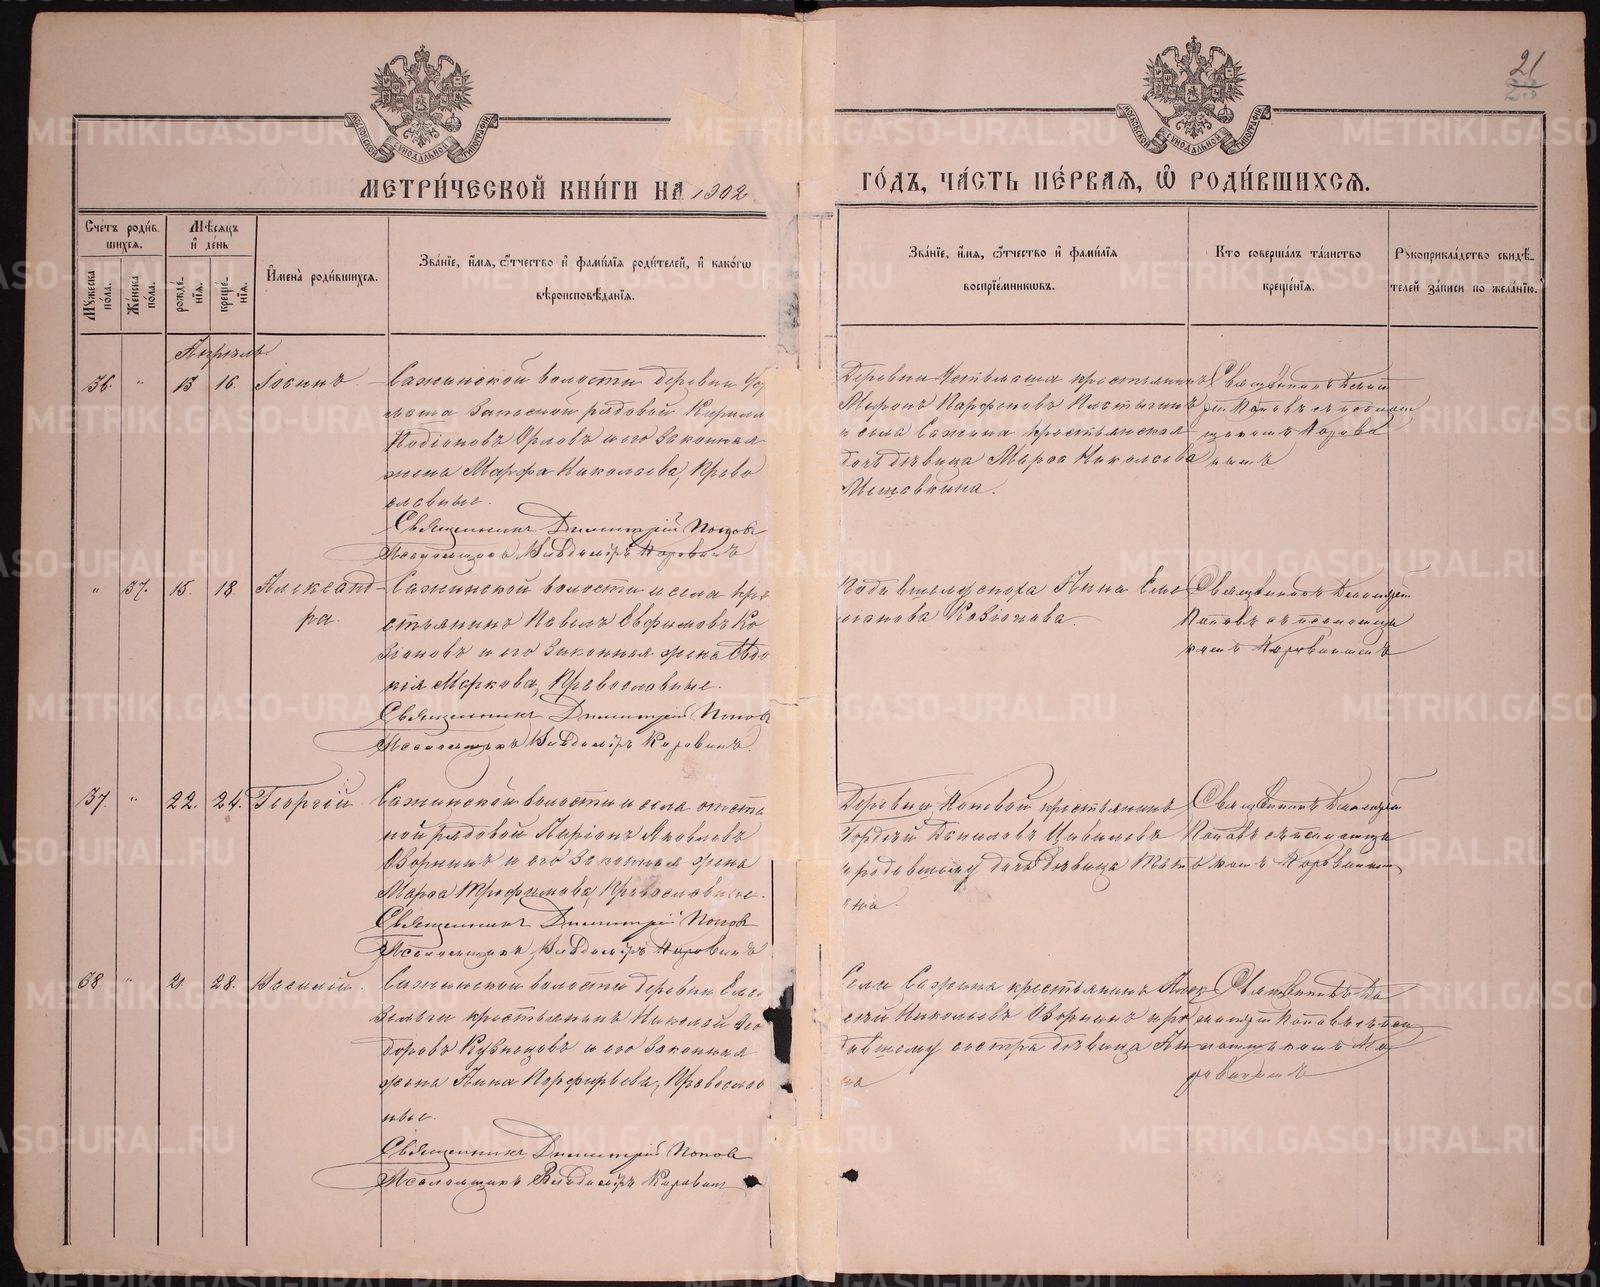 21
МЕТРИ́ЧЕСКОЙ КНИ́ГИ НА 1902
ГО́ДЪ, ЧА́СТЬ ПЕ́РВАЯ, Ѡ РОДИ́ВШИХСЯ.
Счетъ роди́вшихся.
Мѣ́сяцъ и де́нь
Мꙋжеска по́ла.
Же́нска по́ла.
рожде́нїя.
креще́нїя.
И҆мена̀ роди́вшихся.
Зва́нїе, и҆́мя, ѻ҆́тчество и҆ фами́лїя роди́телей, и҆ како́гѡ
вѣроисповѣ́данїя.
Зва́нїе, и҆́мя, ѻ҆́тчество и҆ фами́лїя
воспрїе́мникѡвъ.
Кто̀ соверша́лъ та́инство
креще́нїя.
Рꙋкоприкла́дство свидѣ́телей за́писи по жела́нїю.
Апрѣль
36. " 13 16. Іоаннъ
Сажинской волости деревни Усть
маша запасной рядовой Кирилл
Родіоновъ Орловъ и его законная
жена Марфа Николаева, Право
славные.
Священникъ Димитрій Попов
Псаломщикъ Владиміръ Коровинъ
Деревни Устьмаша крестьянинъ
Миронъ Парфеновъ
и села Сажина крестьянская
дочь дѣвица Марѳа Николаева
Священникъ Димит
рій Поповъ съ псалом
щикомъ Корови
нымъ
" 37. 15. 18 Александ
ра.
Сажинской волости и села кре
стьянинъ Павелъ Евфимовъ Ко
зіоновъ и его законная жена Евдо
кія Маркова, Православные.
Священникъ Димитрій Попов
Псаломщикъ Владиміръ Коровинъ.
Анна Еме
ліанова Козіонова.
Священникъ Димитрій
Поповъ съ псаломщи
комъ Коровинымъ
37. " 22. 24. Георгій
Сажинской волости и села отстав
ной рядовой Ларіонъ Яковлевъ
Зворнинъ и его законная жена
Марѳа Трофимова, Православные.
Священникъ Димитрій Попов
Псаломщикъ Владиміръ Коровинъ
Деревни Поповой крестьянинъ
Гордѣй Даниловъ
и родившему дочь дѣвица Тать
яна.
Священникъ Димитрій
Поповъ съ псаломщи
комъ Коровинымъ
68 " 21 28. Василій.
Сажинской волости деревни
крестьянинъ Николай Ѳео
доровъ Кузнецовъ и его законная
жена Анна Порфирьева, Православ
ные.
Священникъ Димитрій Попов
Псаломщикъ Владиміръ Коровин
Села Сажина крестьянинъ Алек
сѣй Николаевъ Зворнинъ и ро
дившему сестра дѣвица Ан
на
Священникъ Ди
митрій Поповъ съ пса
ломщикомъ Ко
ровинымъ
METRIKI.GASO-URAL.RU